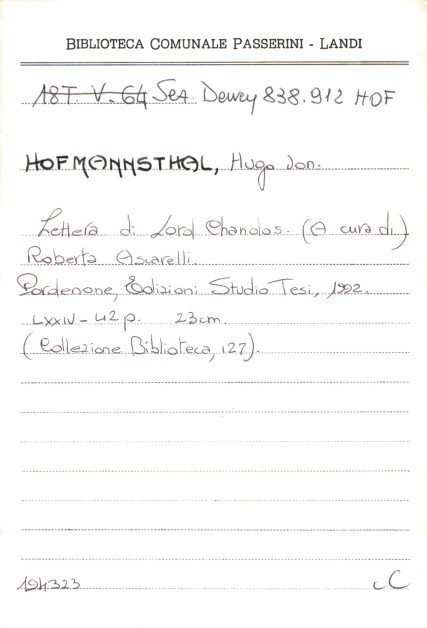 BIBLIOTECA COMUNALE PASSERINI - LANDI
18T. V. 64 Sez. Dewey 838.912 HOF
HOFMANNSTHAL, Hugo von.
Lettera di Lord Chandos. (A cura di)
Roberta Ascarelli.
Pordenone, Edizioni Studio Tesi, 1992.
LXXIV - 42 p. 23cm.
(Collezione Biblioteca, 127).
194323 cC